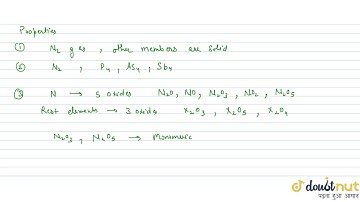 Properties
① N₂ gas, other members are solid
② N₂, P₄, As₄, Sb₄
③ N → 5 oxides N₂O, NO, N₂O₃, NO₂, N₂O₅
Rest elements → 3 oxides X₂O₃, X₂O₅, X₂O₄
N₂O₃, N₂O₅ → Monomeric
doubtnut
पढ़ना हुआ आसान